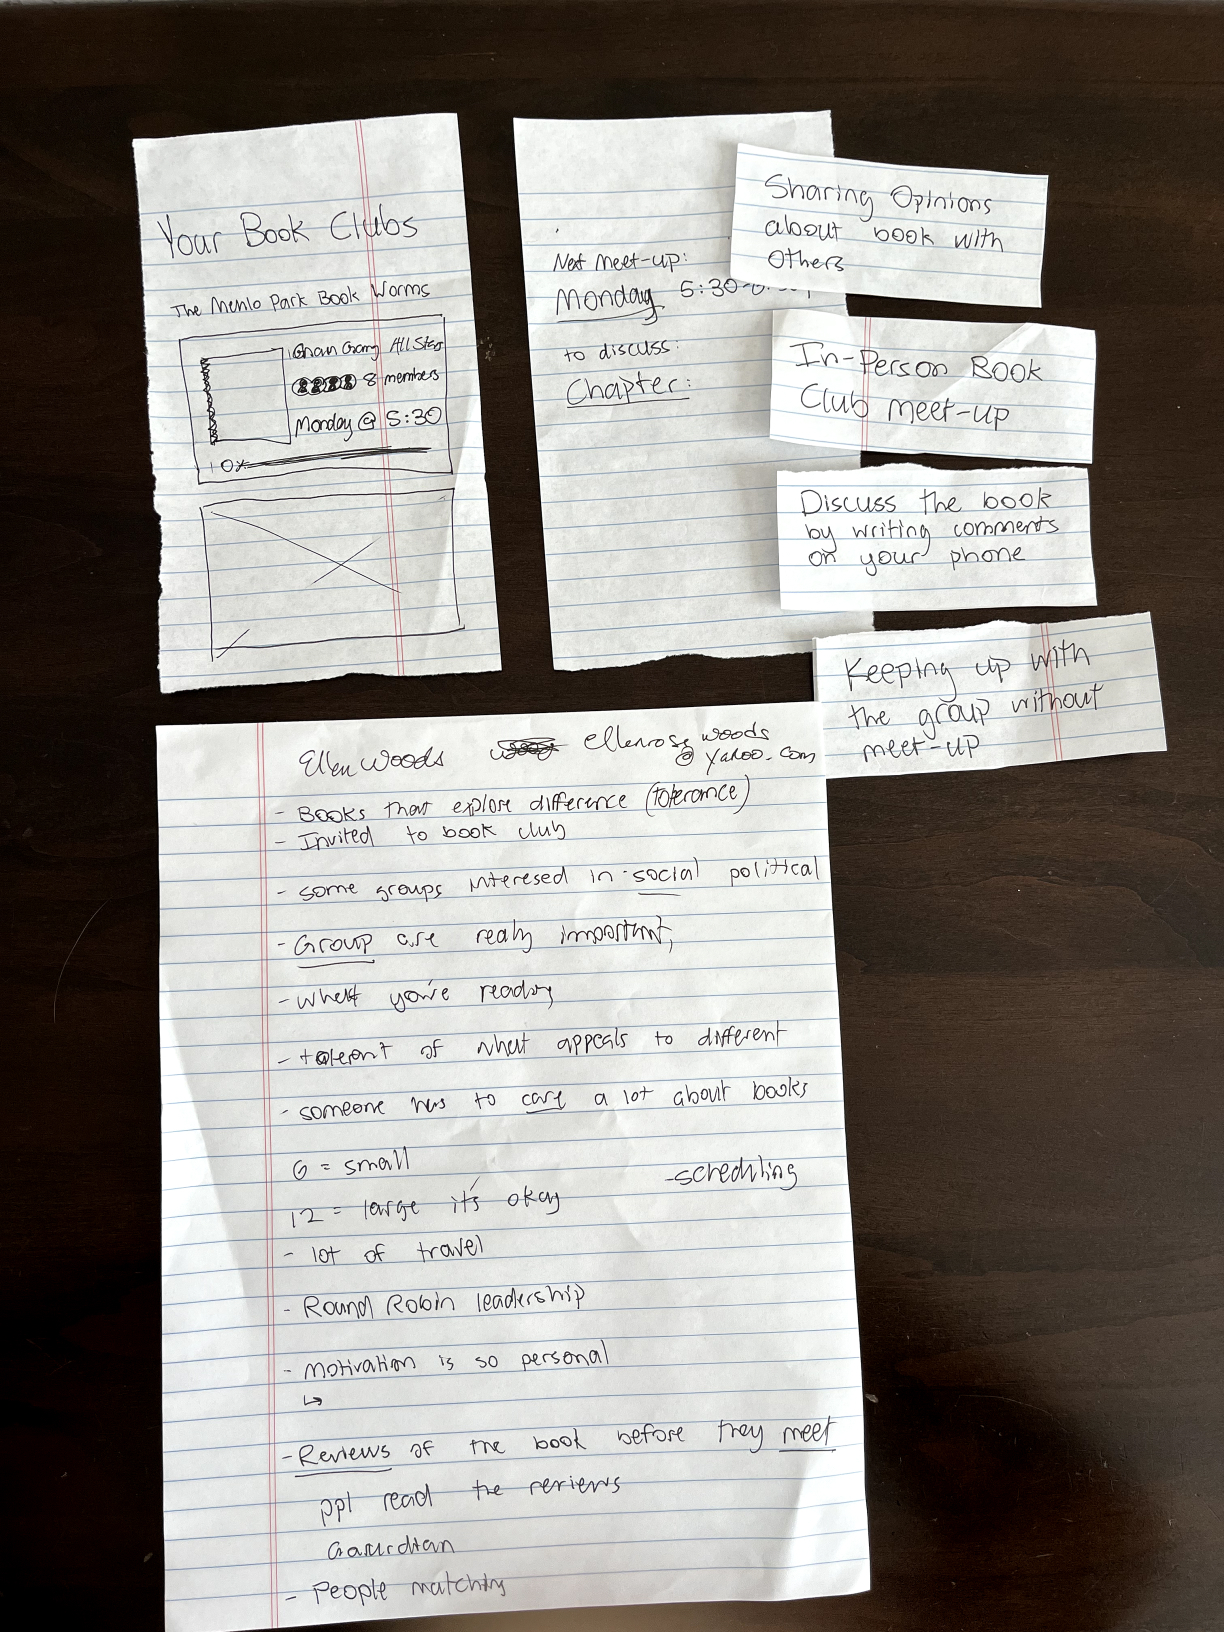 Your Book Clubs
The Menlo Park Book Worms
All Stars
8 members
Monday @ 5:30
Next meet-up:
Monday 5:30-
to discuss:
Chapter:
Sharing Opinions
about book with
Others
In-Person Book
Club meet-up
Discuss the book
by writing comments
on your phone
Keeping up with
the group without
meet-up
Ellen Woods
ellenrosewoods
@ yahoo.com
- Books that explore difference (tolerance)
- Invited to book club
- some groups interesed in social political
- Group are really important,
- what you're reading
- tolerant of what appeals to different
- someone has to care a lot about books
6 = small
- scheduling
12 = large it's okay
- lot of travel
- Round Robin leadership
- motivation is so personal
↳
- Reviews of the book before they meet
ppl read the reviews
- People matching